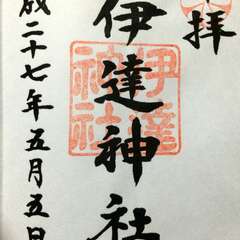 奉拝
伊達神社
伊達神社
成二十七年五月五日